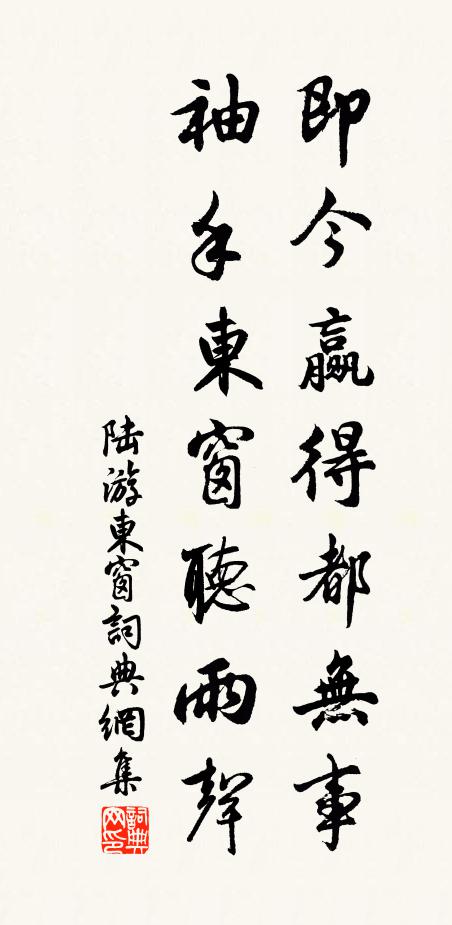 即今贏得都無事
袖手東窗聽雨聲
陸游東窗詞典網集
詞典
网印